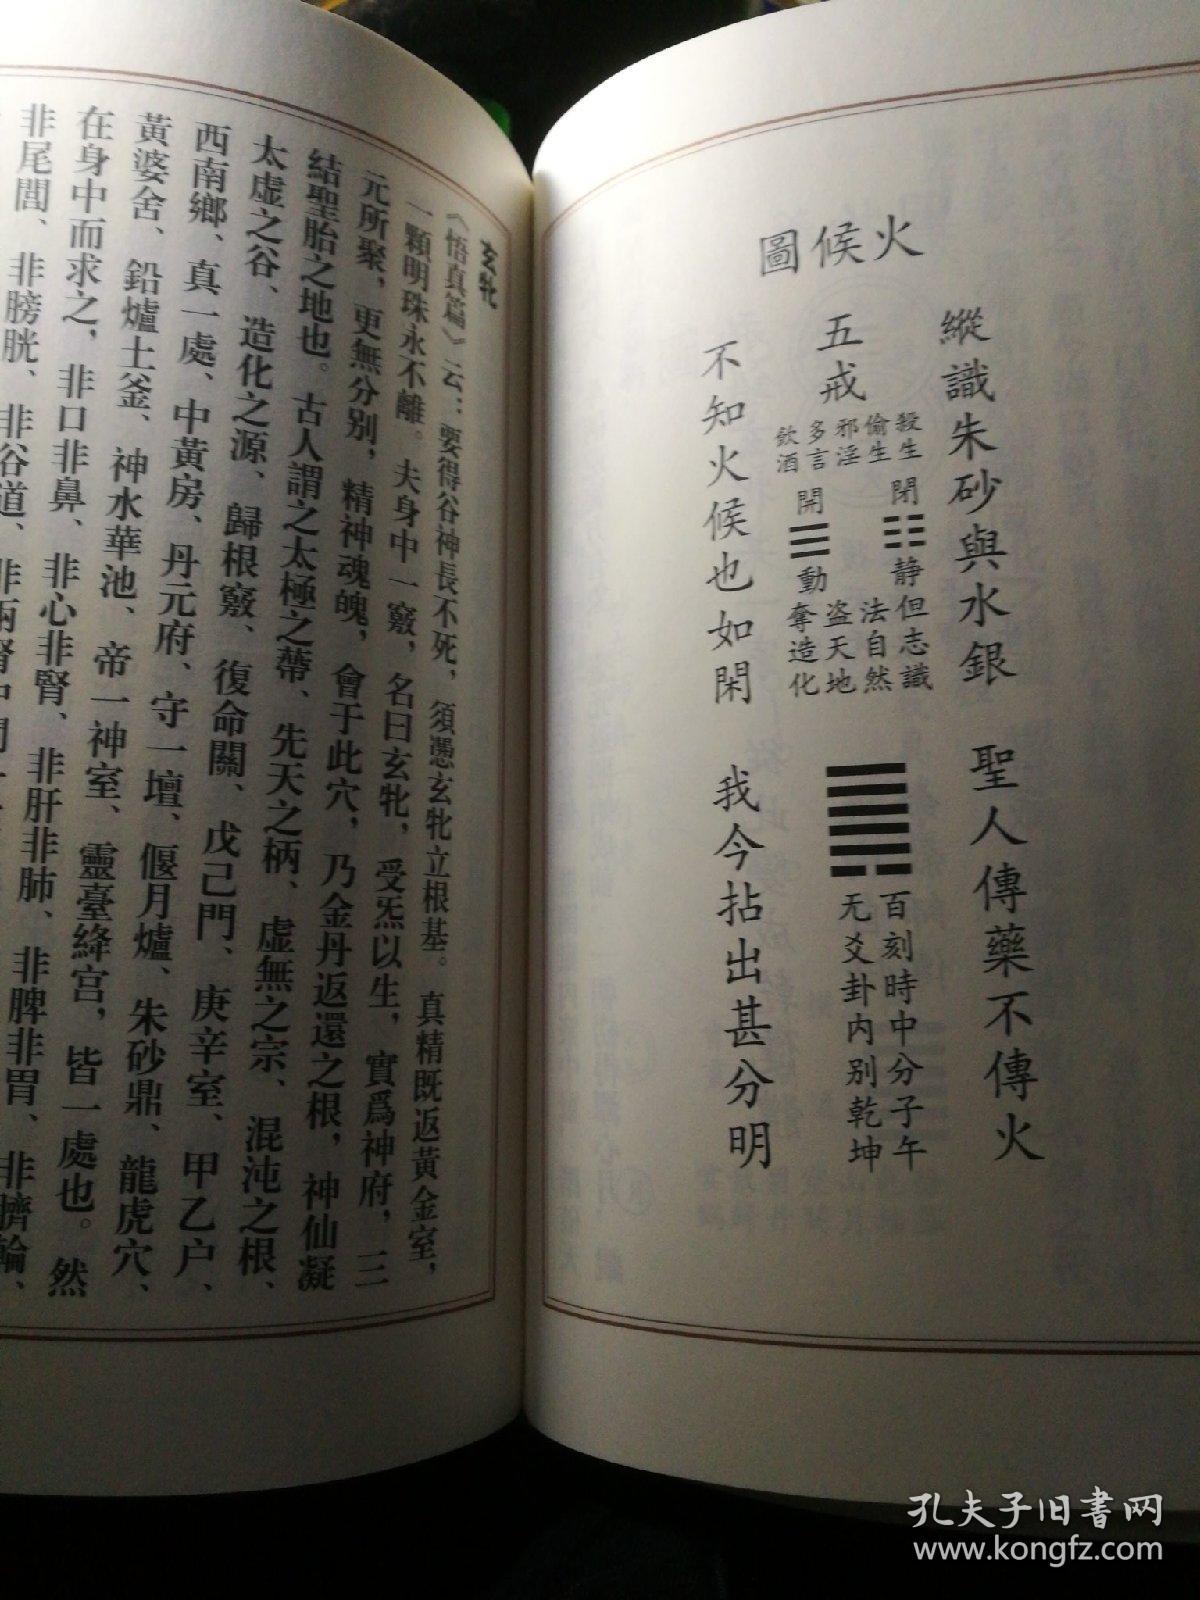 火候圖
縱識朱砂與水銀　聖人傳藥不傳火
五戒
殺生
偷生
邪淫
多言
飲酒
閉 ☷ 靜但志識
法自然
盜天地
開 ☰ 動奪造化
百刻時中分子午
无爻卦內別乾坤
不知火候也如閑　我今拈出甚分明
玄牝
《悟真篇》云：要得谷神長不死，須憑玄牝立根基。真精既返黃金室，
一顆明珠永不離。夫身中一竅，名曰玄牝，受炁以生，實爲神府，三
元所聚，更無分別，精神魂魄，會于此穴，乃金丹返還之根，神仙凝
結聖胎之地也。古人謂之太極之蒂、先天之柄、虛無之宗、混沌之根、
太虛之谷、造化之源、歸根竅、復命關、戊己門、庚辛室、甲乙户、
西南鄉、真一處、中黃房、丹元府、守一壇、偃月爐、朱砂鼎、龍虎穴、
黃婆舍、鉛爐土釜、神水華池、帝一神室、靈臺絳宫，皆一處也。然
在身中而求之，非口非鼻、非心非腎、非肝非肺、非脾非胃、非臍輪、
非尾閭、非膀胱、非谷道、非兩腎中間
孔夫子旧书网
www.kongfz.com